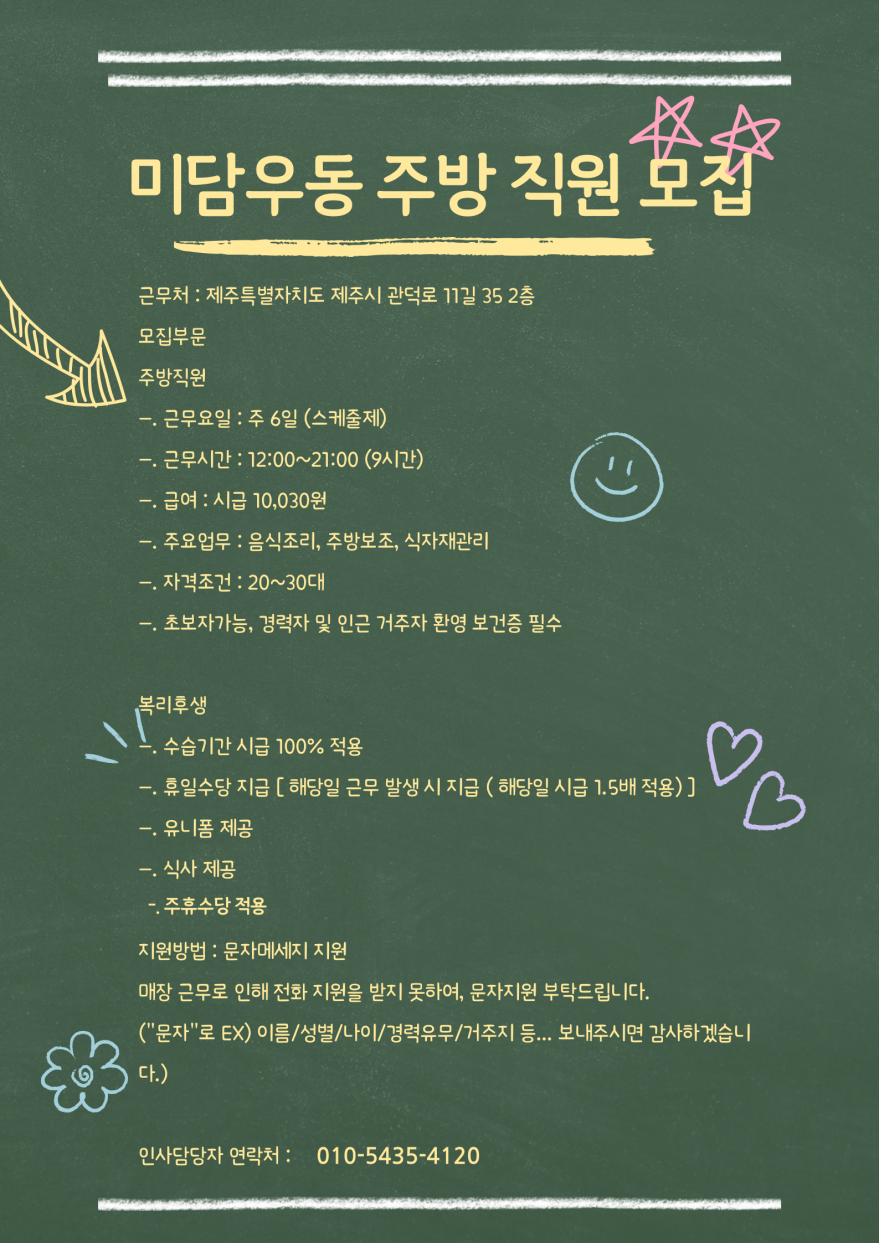 미담우동 주방 직원 모집
근무처 : 제주특별자치도 제주시 관덕로 11길 35 2층
모집부문
주방직원
–. 근무요일 : 주 6일 (스케줄제)
–. 근무시간 : 12:00~21:00 (9시간)
–. 급여 : 시급 10,030원
–. 주요업무 : 음식조리, 주방보조, 식자재관리
–. 자격조건 : 20~30대
–. 초보자가능, 경력자 및 인근 거주자 환영 보건증 필수
복리후생
–. 수습기간 시급 100% 적용
–. 휴일수당 지급 [ 해당일 근무 발생 시 지급 ( 해당일 시급 1.5배 적용) ]
–. 유니폼 제공
–. 식사 제공
-. 주휴수당 적용
지원방법 : 문자메세지 지원
매장 근무로 인해 전화 지원을 받지 못하여, 문자지원 부탁드립니다.
("문자"로 EX) 이름/성별/나이/경력유무/거주지 등... 보내주시면 감사하겠습니
다.)
인사담당자 연락처 : 010-5435-4120